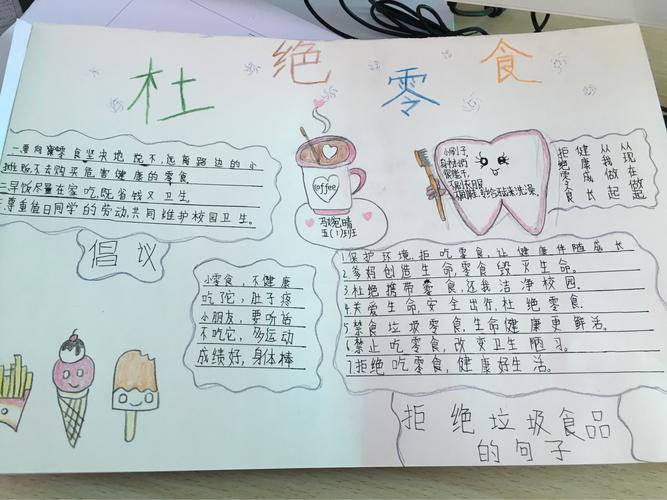 杜绝零食
一.要向零食坚决地说不,远离路边的小
摊贩不去购买危害健康的零食
二.早饭尽量在家吃,既省钱又卫生。
三.尊重值日同学的劳动,共同维护校园卫生。
倡议
coffee
五(1)班
小刷子,
不刷衣服
从现在做起
从我做起
健康成长
拒绝零食
小零食,不健康
吃了它,肚子疼
小朋友,要听话
不吃它,多运动
成绩好,身体棒
1.保护环境,拒吃零食,让健康伴随成长
2.爹妈创造生命,零食毁灭生命。
3.杜绝携带零食,还我洁净校园。
4.关爱生命,安全出行,杜绝零食.
5.禁食垃圾零食,生命健康更鲜活。
6.禁止吃零食,改变卫生陋习。
7.拒绝吃零食,健康好生活。
拒绝垃圾食品
的句子